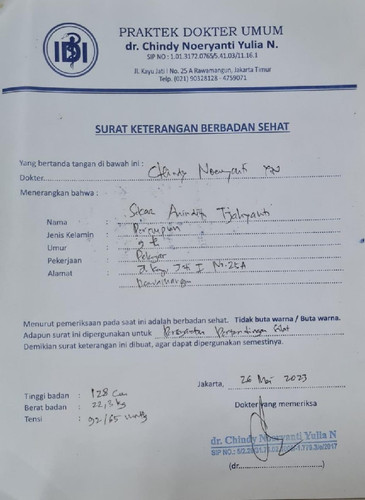 IDI
PRAKTEK DOKTER UMUM
dr. Chindy Noeryanti Yulia N.
SIP NO : 1.01.3172.0765/5.41.03/11.16.1
Jl. Kayu Jati I No. 25 A Rawamangun, Jakarta Timur
Telp. (021) 90328128 - 4759071
SURAT KETERANGAN BERBADAN SEHAT
Yang bertanda tangan di bawah ini :
Dokter Chindy Noeryanti
Menerangkan bahwa :
Nama : Anindita Tjahyanti
Jenis Kelamin : Perempuan
Umur :
Pekerjaan : Pelajar
Alamat : Jl. Kayu Jati I No. 25A
Rawamangun
Menurut pemeriksaan pada saat ini adalah berbadan sehat. Tidak buta warna / Buta warna.
Adapun surat ini dipergunakan untuk Persyaratan Pertandingan
Demikian surat keterangan ini dibuat, agar dapat dipergunakan semestinya.
Jakarta, 26 Mei 2023
Tinggi badan : 128 cm
Berat badan : 22,3 kg
Tensi : 92/65 mmHg
Dokter yang memeriksa
dr. Chindy Noeryanti Yulia N
SIP NO.:
(dr.)